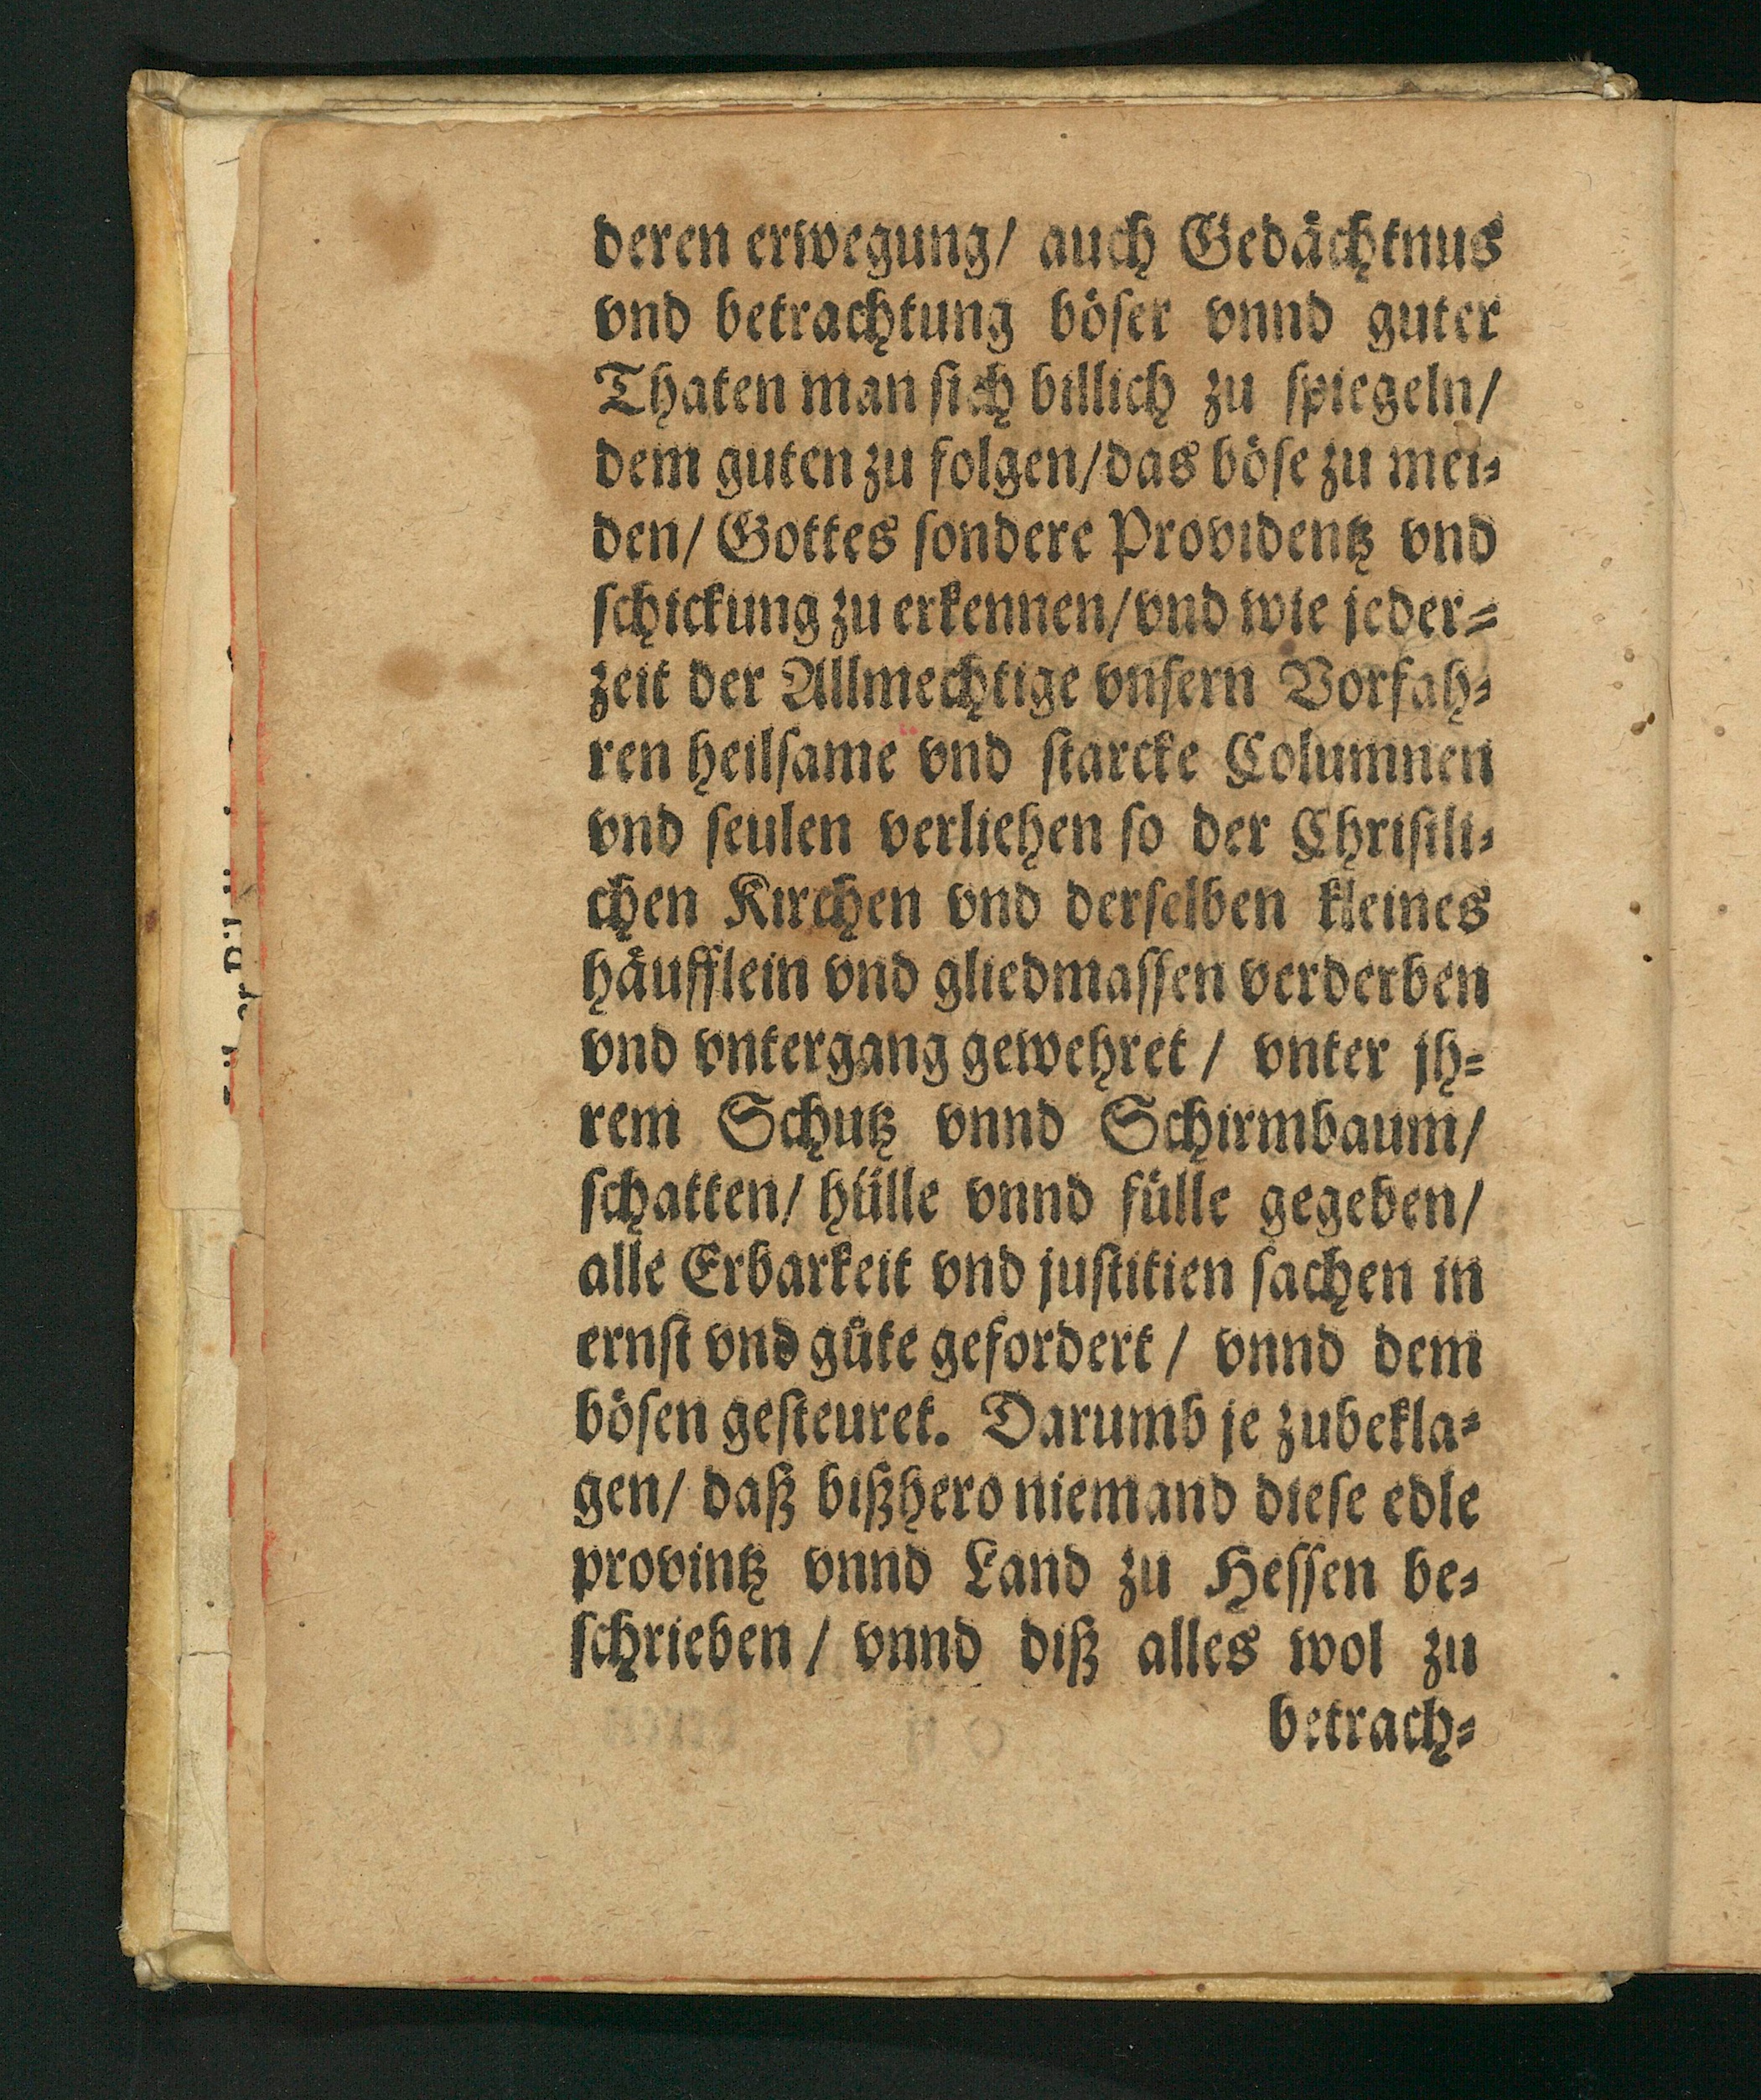 deren erwegung/ auch Gedächtnus
vnd betrachtung böser vnnd guter
Thaten man sich billich zu spiegeln/
dem guten zu folgen/das böse zu mei-
den/ Gottes sondere Providentz vnd
schickung zu erkennen/vnd wie jeder-
zeit der Allmechtige vnsern Vorfah-
ren heilsame vnd starcke Columnen
vnd seulen verliehen so der Christli-
chen Kirchen vnd derselben kleines
häufflein vnd gliedmassen verderben
vnd vntergang gewehret / vnter jh-
rem Schutz vnnd Schirmbaum/
schatten/ hülle vnnd fülle gegeben/
alle Erbarkeit vnd justitien sachen in
ernst vnd güte gefordert / vnnd dem
bösen gesteuret. Darumb je zubekla-
gen/ daß bißhero niemand diese edle
provintz vnnd Land zu Hessen be-
schrieben / vnnd diß alles wol zu
betrach-